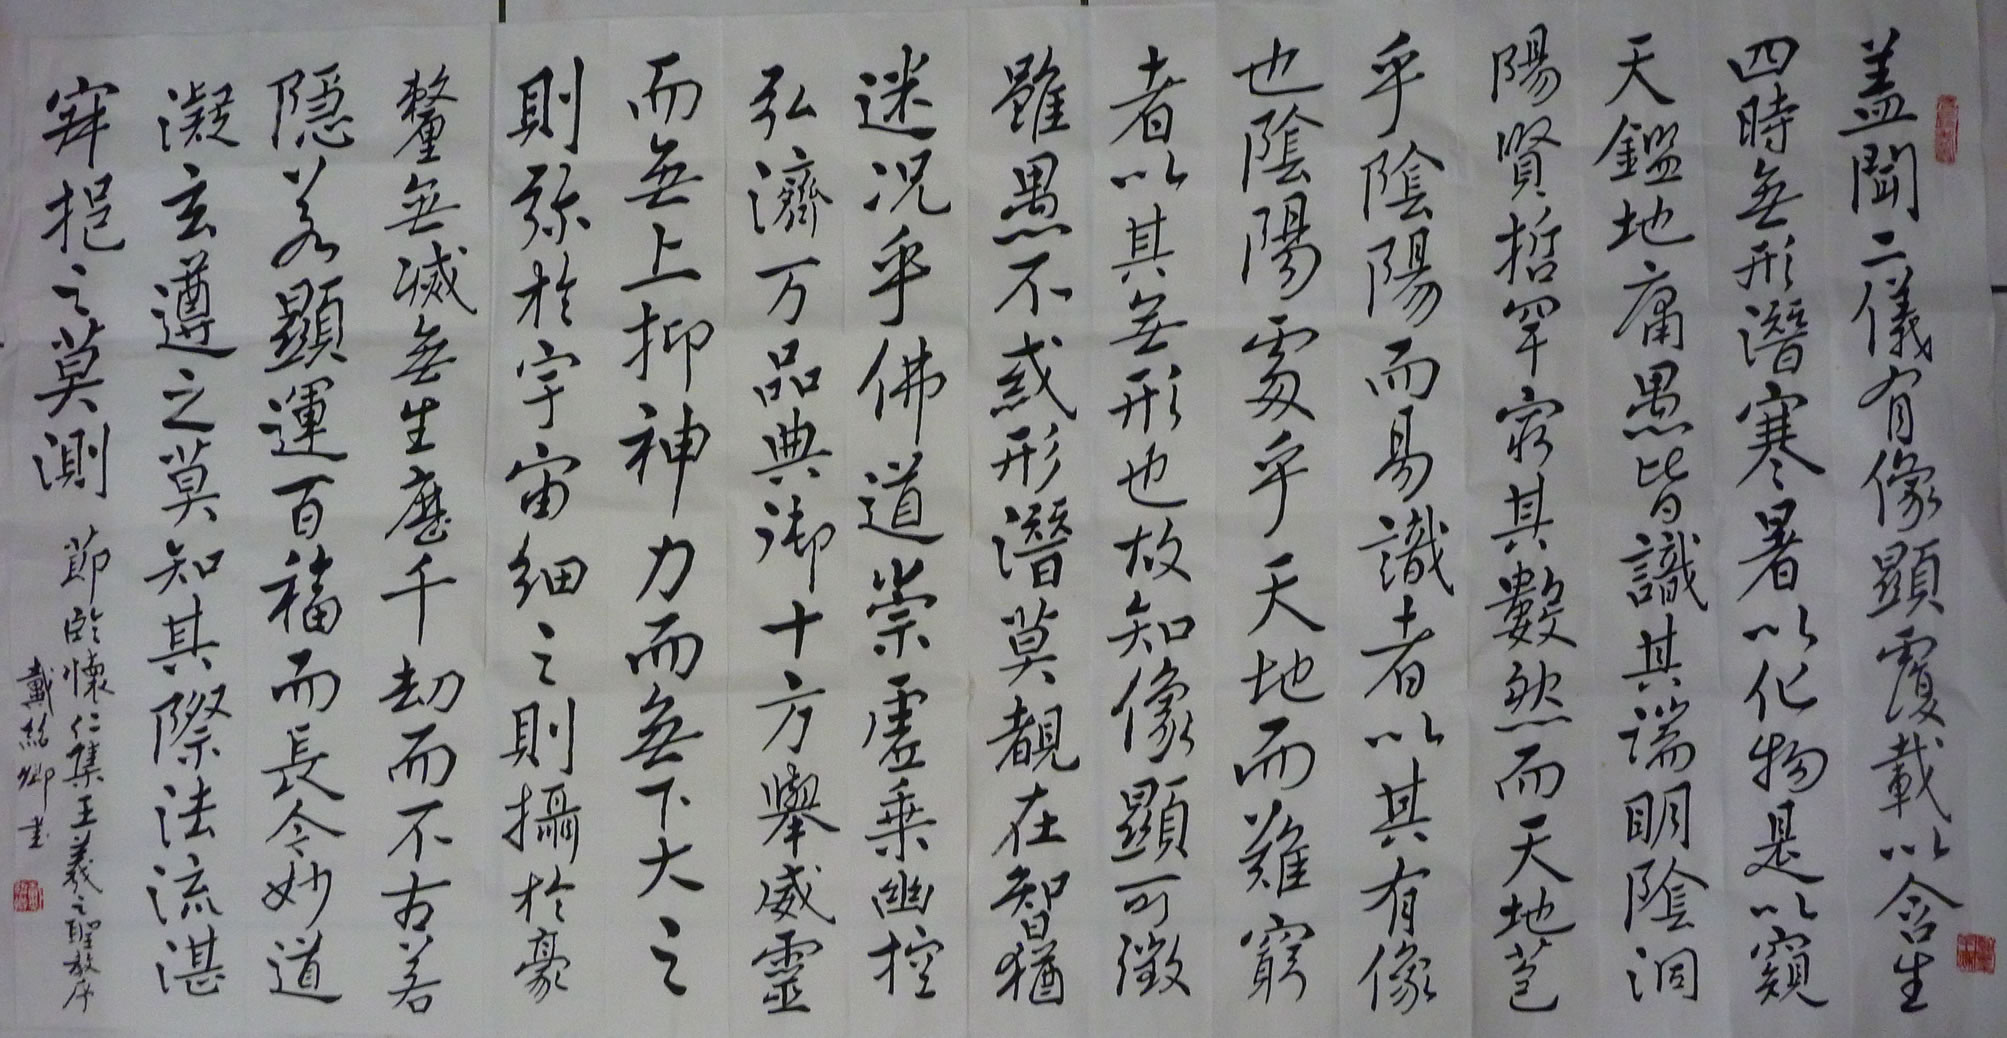 蓋聞二儀有像顯覆載以含生
四時無形潛寒暑以化物是以窺
天鑑地庸愚皆識其端明陰洞
陽賢哲罕窮其數然而天地苞
乎陰陽而易識者以其有像
也陰陽處乎天地而難窮
者以其無形也故知像顯可徵
雖愚不惑形潛莫覩在智猶
迷況乎佛道崇虛乗幽控
弘濟万品典御十方舉威靈
而無上抑神力而無下大之
則弥於宇宙細之則攝於豪
釐無滅無生歷千劫而不古若
隱若顯運百福而長今妙道
凝玄遵之莫知其際法流湛
寂挹之莫測
節臨懷仁集王羲之聖教序
戴紹卿書